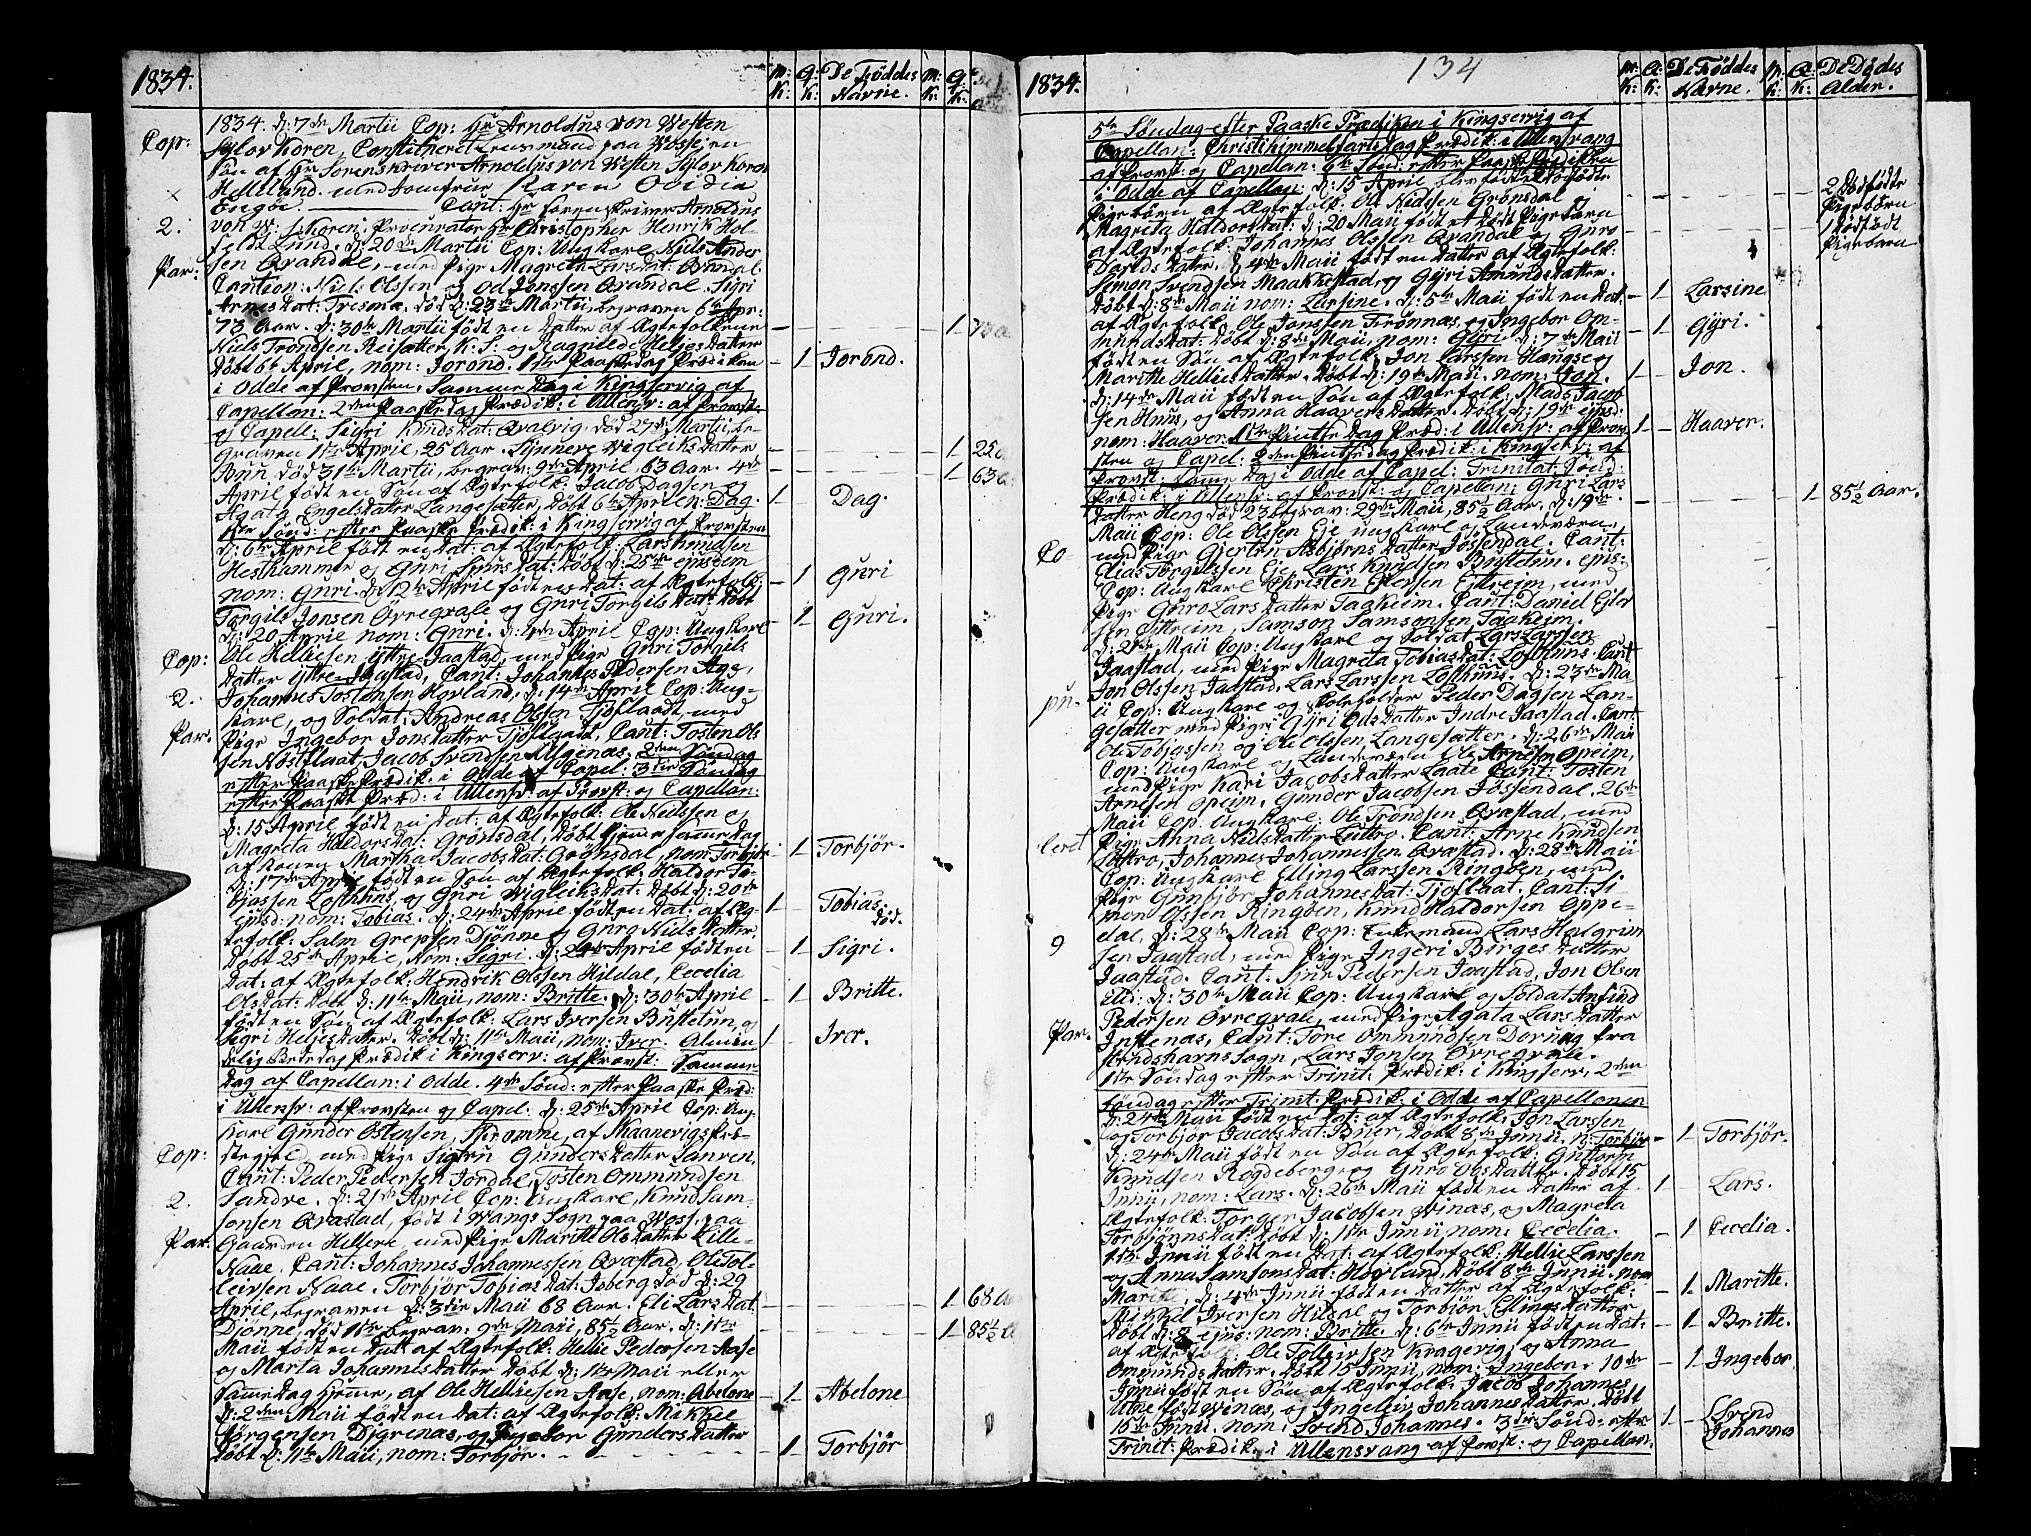 1834.
M: K:
Q: K:
De Føddes Navne.
M: K:
Q: K:
1834. d: 7de Martii Cop: Hr Arnoldus von Westen
Cop:
Sylov Koren, Constitueret Lensmand paa Vosse, en
Søn af Hr Sorenskriver Arnoldus von Westen Sylov Koren
Helleland. med Jomfrue Karen Ovidia
Engøe Cant: Hr Sorenskriver Arnoldus
2.
von W: S: Koren, Procurator Hr Christopher Henrik Hol-
feldt Lund. d: 20de Martii Cop: Ungkarl Niels Ander
Par:
sen Qvandal, med Pige Magreta Larsdat: Qvandal.
Cantion: Niels Olssen og Od Jonssen Qvandal. Sigri
Arnesdat: død d: 23de Martii, begraven 6te Apr:
73 Aar. d: 30te Martii født en Datter af Ægtefolkene
1
Niels Trondsen Reisæter K: S: og Ragnilde Heljesdatter
Døbt 6te April, nom: Jorond. 1ste Paaskedag Prædiken
1 Jorond.
i Odde af Provsten. Samme Dag i Kingservig af
Capellan: 2den Paaskedag Prædik: i Ullensv: af Provst:
og Capell: Sigri Knudsdat: Qvalvig, død 27de Martii, be-
graven 1ste April, 25 Aar. Synneve Vigleiksdatter
1 25
Bnu, død 31te Martii, begrav: 9de April, 63 Aar. 4de
1 63
April født en Søn af Ægtefolk: Jacob Dagsen og
Agata Engelsdatter Langesæter, Døbt 6te April n: Dag.
1 Dag.
1ste Sønd: efter Paaske Prædik: i Kingservig af Provsten
d: 6te April født en Dat: af Ægtefolk: Lars Knudsen
Hesthammer og Guri Døbt d: 25de ejusdem
nom: Guri. d: 12te April født en Dat: af Ægtefolk:
1 Guri
Torgils Jonsen Ørregvale og Guri Torgils Dat: Døbt
d: 20 April nom: Guri. d: 4de April Cop: Ungkarl
1 Guri.
Ole Helliesen Yttre Jaastad, med Pige Guri Torgils
Cop:
Datter Yttre Jaastad, Cant: Johannes Pedersen Age,
2.
Johannes Tostensen Hovland, d: 14de April Cop: Ung-
karl, og Soldat: Andreas Olsen Tjoflaadt, med
Par.
Pige Ingebor Jonsdatter Tjoflaadt, Cant: Tosten Ols
sen Nøstflaat, Jacob Svendsen Alsgenæs. 2den Søndag
efter Paaske Prædik: i Odde af Capel: 3die Søndag
efter Paaske Præd: i Ullensv: af Provst: og Capellan:
d: 15 April født en Dat: af Ægtefolk: Ole Nielssen og
Magreta Haldorsdat: Grønsdal, Døbt hjeme samme Dag
af Konen Martha Jacobsdat: Grønsdal, nom: Torbjør
1 Torbjør.
d: 17de April født en Søn af Ægtefolk: Haldor To-
bjassen Lofthuus, og Guri Vigleiksdat: Døbt d: 20de
ejusd: nom: Tobias. d: 24de April født en Dat: af Æg-
1 Tobias. død.
tefolk: Salm Grepsen Djønne og Guro Nielsdatter,
Døbt 25de April, nom: Sigri. d: 24de April født en
1 Sigri.
Dat: af Ægtefolk: Hendrik Olssen Hildal, Cecelia
Olsdat: Døbt d: 11te Maii, nom: Britte. d: 30te April
1 Britte.
født en Søn af Ægtefolk: Lars Iversen Bustetun, og
Sigri Heljesdatter. Døbt d: 11te Maii, nom: Iver. Almin
1 Iver.
delig Bededag Prædik i Kingserv: af Provst: Samme
Dag af Capellan: i Odde. 4de Sønd: efter Paaske Præd:
i Ullensv: af Provsten og Capel: d: 25de April Cop: Ung-
karl Gunder Ostensen, af Maanevigs Præ-
Cop:
stegjeld, med Pige Sigtru Gundersdatter Sanven,
Cant: Peder Pedersen Jordal, Tosten Ommundsen
2.
Sandve. d: 21de April Cop: Ungkarl, Knud Sam-
sonsen Qvæstad, født i Wangs Sogn paa Voss, paa
Par.
Gaarden Hellere, med Pige Maritte Olsdatter Lille-
Naae, Cant: Johannes Johannessen Qvæstad, Ole Tol-
leivsen Naae. Torbjør Tobiasdat: Isberg død d: 29
April, begraven d: 3die Maii 68 Aar. Eli Larsdat:
1 68
Djønne, død 1ste begrav: 9de Maii, 85½ Aar. d: 1ste
1 85½
Maii født en Dat: af Ægtefolk: Hellie Pedersen Aase
og Marta Johannesdatter Døbt d: 11te Maii eller
samme Dag hjeme, af Ole Helliesen Aase, nom: Abelone
1 Abelone
d: 2den Maii født en Dat: af Ægtefolk: Mikkel
Jørgensen Digrenæs, og Ingebor Gundersdatter
Døbt d: 11te Maii, nom: Torbjør.
1 Torbjør
1834.
134
M: K:
Q: K:
De Føddes Navne.
M: K:
Q: K:
De Dødes Alder.
5te Søndag efter Paaske Prædiken i Kingservig af
Capellan: Christi himmelfartsdag Prædik: i Ullensvang
af Provst: og Capellan: 6te Sønd: efter Paaske Prædiken
i Odde af Capellan: d: 15 April blev født 2 dødfødte
2 dødfødte Pigebørn
Pigebørn af Ægtefolk: Ole Nielssen Grønsdal og
Magreta Haldorsdat: d: 20 Maii født et dødt Pigebarn
1 dødfødt Pigebarn
af Ægtefolk: Johannes Olssen Qvandal og Guro
Davids Datter. d: 4de Maii født en Datter af Ægtefolk:
Simon Svendsen Maakkestad, og Gÿri Amundsdatter.
Døbt d: 8de Maii nom: Larsine. d: 5te Maii født en Dat:
1 Larsine
af Ægtefolk: Ole Jonssen Trønnæs, og Ingebor Om-
mundsdat: Døbt d: 8de Maii, nom: Gÿri. d: 7de Maii
1 Gÿri.
født en Søn af Ægtefolk: Jon Larssen Haugse og
Maritte Helliesdatter. Døbt d: 19de Maii. nom: Jon.
1 Jon.
d: 14de Maii født en Søn af Ægtefolk: Mads Jacob
sen Huus, og Anna Haaversdatter. Døbt d: 19de ejusd:
nom: Haaver. 1ste Pintsedag Præd: i Ullensv: af Prov-
1 Haaver.
sten og Capel: 2den Pintsedag Prædik: i Kingserv: af
Provst: Same Dag i Odde af Capel: Trinitat: Sønd:
Prædik: i Ullensv: af Provst: og Capellan: Guri Lars
Datter Heng død 23 begrav: 29de Maii, 85½ Aar. d: 19de
1 85½ Aar.
Maii Cop: Ole Olssen Eje ungkarl og Landværn,
Co
med Pige Gjertru Asbjørns Datter Jøssendal. Cant:
Elias Torgilssen Eje, Lars Knudsen Bustetun. ejus:
Cop: Ungkarl Christen Ejlersen Eitrejm, med
Pige Guro Lars Datter Taakeim. Cant: Daniel Ejler
sen Eitreim, Samson Samsonsen Taakeim.
d: 21de Maii Cop: Ungkarl og Soldat Lars Larssen
Jaastad, med Pige Magreta Tobiasdat: Lofthuus. Cant:
Jon Olssen Jaastad, Lars Larssen Lofthuus. d: 23de Ma-
pu.
ii Cop: Ungkarl og Peder Dagsen Lan-
gesæter med Pige: Gÿri Ods Datter Indre Jaastad. Cant:
Ole Tobjassen og Ole Olssen Langesæter. d: 26de Maii
Cop: Ungkarl og Landværn Ole Arnesen Opeim,
med Pige Kari Jacobsdatter Laate Cant: Tosten
Arnesen Opeim, Gunder Jacobsen Jøssendal. 26de
Maii Cop: Ungkarl: Ole Trondsen Qvæstad, med
Pige Anna Nielsdatter Lutro. Cant: Arne Knudsen
Lutro, Johannes Johannessen Qvæstad. d: 28de Maii
Cop: Ungkarl Elling Larssen Ringøen, med
Pige Gunbjør Johannesdat: Tjoflaat. Cant: Si-
mon Olssen Ringøen, Knud Haldorsen Oppe-
dal, d: 28de Maii Cop: Enkemand Lars Halgrim
9
sen Jaastad, med Pige Ingeri Birges Datter
Jaastad. Cant: Sjur Pedersen Jaastad, Jon Olsen
ibid: d: 30te Maii Cop: Ungkarl og Soldat Anfind
Pedersen Ørregvale, med Pige Agata Larsdatter
Par.
Instenæs, Cant: Tore Ommundsen Dorung fra
Strandebarns Sogn, Lars Jonsen Ørregvale.
1ste Søndag efter Trinit: Prædik: i Kingserv: 2den
Søndag efter Trinit: Prædik: i Odde af Capellanen
d: 24de Maii født en Dat: af Ægtefolk: Jon Larssen
og Torbjor Jacobsdat: Buer, Døbt 8de Junii, n: Torbjør
1 Torbjør.
d: 24de Maii født en Søn af Ægtefolk: Guttorm
Knudsen Rogdeberg og Guro Olsdatter. Døbt 15
Junii, nom: Lars. d: 26de Maii født en Datter af
1 Lars.
Ægtefolk: Torger Jacobsen Winæs, og Magreta
Torbjønsdat: Døbt d: 1ste Junii nom: Cecelia.
1 Cecelia.
1ste Junii født en Dat: af Ægtefolk: Hellie Larssen
og Anna Samsonsdat: Hovland, Døbt 8de Junii. nom
Maritte, d: 4de Junii født en Datter af Ægtefolk:
1 Maritte.
Mikkel Iversen Hildal og Torbjør Ellingsdatter
Døbt d: 8 ejus: nom: Britte. d: 6te Junii født en Dat:
1 Britte.
af Ægtefolk: Ole Tolleivsen Kingservig, og Anna
Ommundsdatter. Døbt 15 Junii, nom: Ingebor. 10de
1 Ingebor
Junii født en Søn af Ægtefolk: Jacob Johannes
Utne født Winæs, og Ingelev Johannesdatter. Døbt
15de Junii. nom: Svend Johannes. 3die Sønd: efter
1 Svend Johannes
Trinit: Prædik: i Ullensvang af Provst: og Capellan: